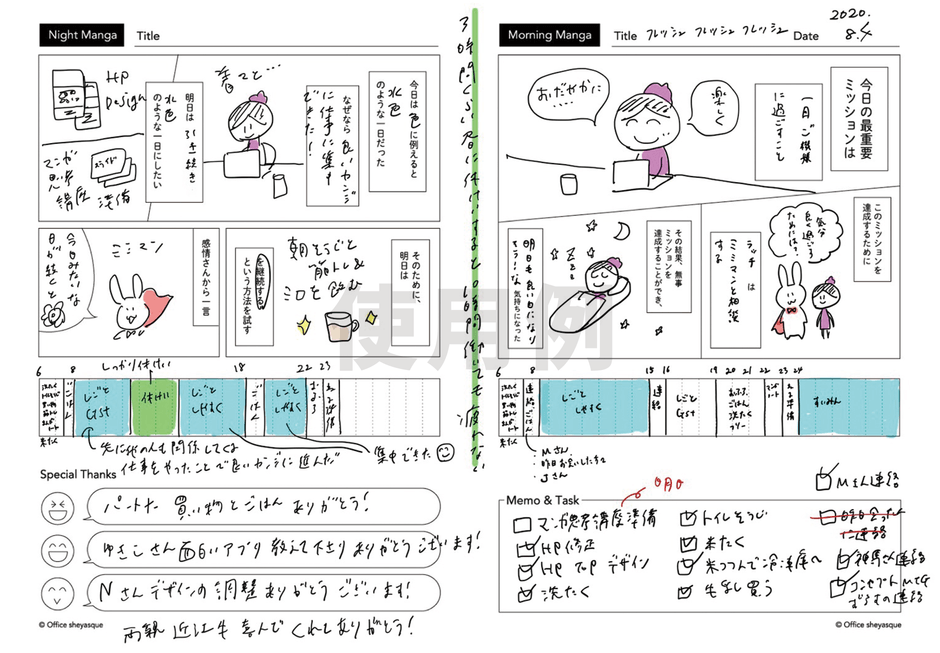 Night Manga
Title
HP
Design
スライド
マンガ
思考
講座 準備
明日は 引き続き
水色
のような一日にしたい
着々と…
なぜなら 良いカンジ
に仕事に集中
できた!
今日は色に例えると
水色
のような一日だった
今日みたいな
日が続くと
ミミマン
感情さんから一言
朝そうじと
筋トレ&
ミロを飲む
を継続する
という方法を試す
そのために、
明日は
しっかり休けい
6
8
18
22
23
ごはん
しごと
Gst
休けい
しごと
しゃすく
ごはん
しごと
しゃすく
おふろ
ねる準備
先に他の人も関係してくる
仕事をやったことで良いカンジに進んだ
集中できた
Special Thanks
パートナー 買い物とごはん ありがとう!
ゆきこさん 面白いアプリ 教えて下さり ありがとうございます!
Nさんデザインの調整ありがとう ございます!
両親 近江牛 喜んでくれてありがとう!
© Office sheyasque
3時間くらい昼に休けいすると10時間働いても疲れない
使用例
Morning Manga
Title フレッシュ フレッシュ フレッシュ
Date
2020.
8.4
おだやかに
楽しく
一日ご機嫌
に過ごすこと
今日の最重要
ミッションは
明日も良い日になり
そうだな 気持ちになった
その結果、無事
ミッションを
達成することができ、
zzz
ラッチ は
ミミマンと相談
する
気分
良く過ごす
ためには?
このミッションを
達成するために
6
8
15
16
19
20
21
22
23
24
連絡・ごはん
しごと
しゃすく
連絡
しごと
Gst
おふろ
ごはん
洗たく
フリー
ねる準備
すいみん
・Mさん
・昨日お会いした方
・Jさん
Mさん連絡
Memo & Task
明日
マンガ思考講座準備
HP修正
HP TOP デザイン
洗たく
トイレそうじ
米たく
米2つ分で冷凍庫へ
牛乳 買う
神馬さん連絡
コンセプトMTG
© Office sheyasque